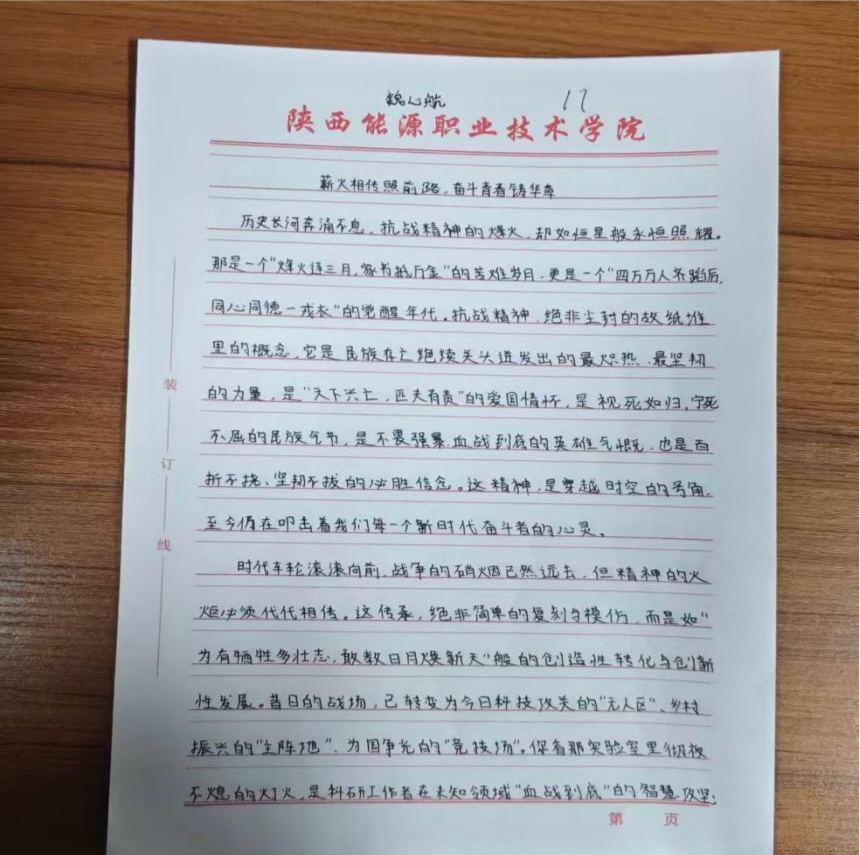 魏心航 17
陕西能源职业技术学院
薪火相传照前路，奋斗青春铸华章
历史长河奔涌不息，抗战精神的烽火，却如恒星般永恒照耀。
那是一个"烽火连三月，家书抵万金"的苦难岁月，更是一个"四万万人齐蹈厉，
同心同德一戎衣"的觉醒年代。抗战精神，绝非尘封的故纸堆
里的概念，它是民族存亡绝续关头迸发出的最炽热、最坚韧
的力量，是"天下兴亡，匹夫有责"的爱国情怀，是视死如归、宁死
不屈的民族气节，是不畏强暴、血战到底的英雄气概，也是百
折不挠、坚韧不拔的必胜信念。这精神，是穿越时空的号角，
至今仍在叩击着我们每一个新时代奋斗者的心灵。
时代车轮滚滚向前，战争的硝烟已然远去，但精神的火
炬必须代代相传。这传承，绝非简单的复刻与模仿，而是如"
为有牺牲多壮志，敢教日月换新天"般的创造性转化与创新
性发展。昔日的战场，已转变为今日科技攻关的"无人区"、乡村
振兴的"主阵地"、为国争光的"竞技场"。你看那实验室里彻夜
不熄的灯火，是科研工作者在未知领域"血战到底"的智慧攻坚；
装
订
线
第 页